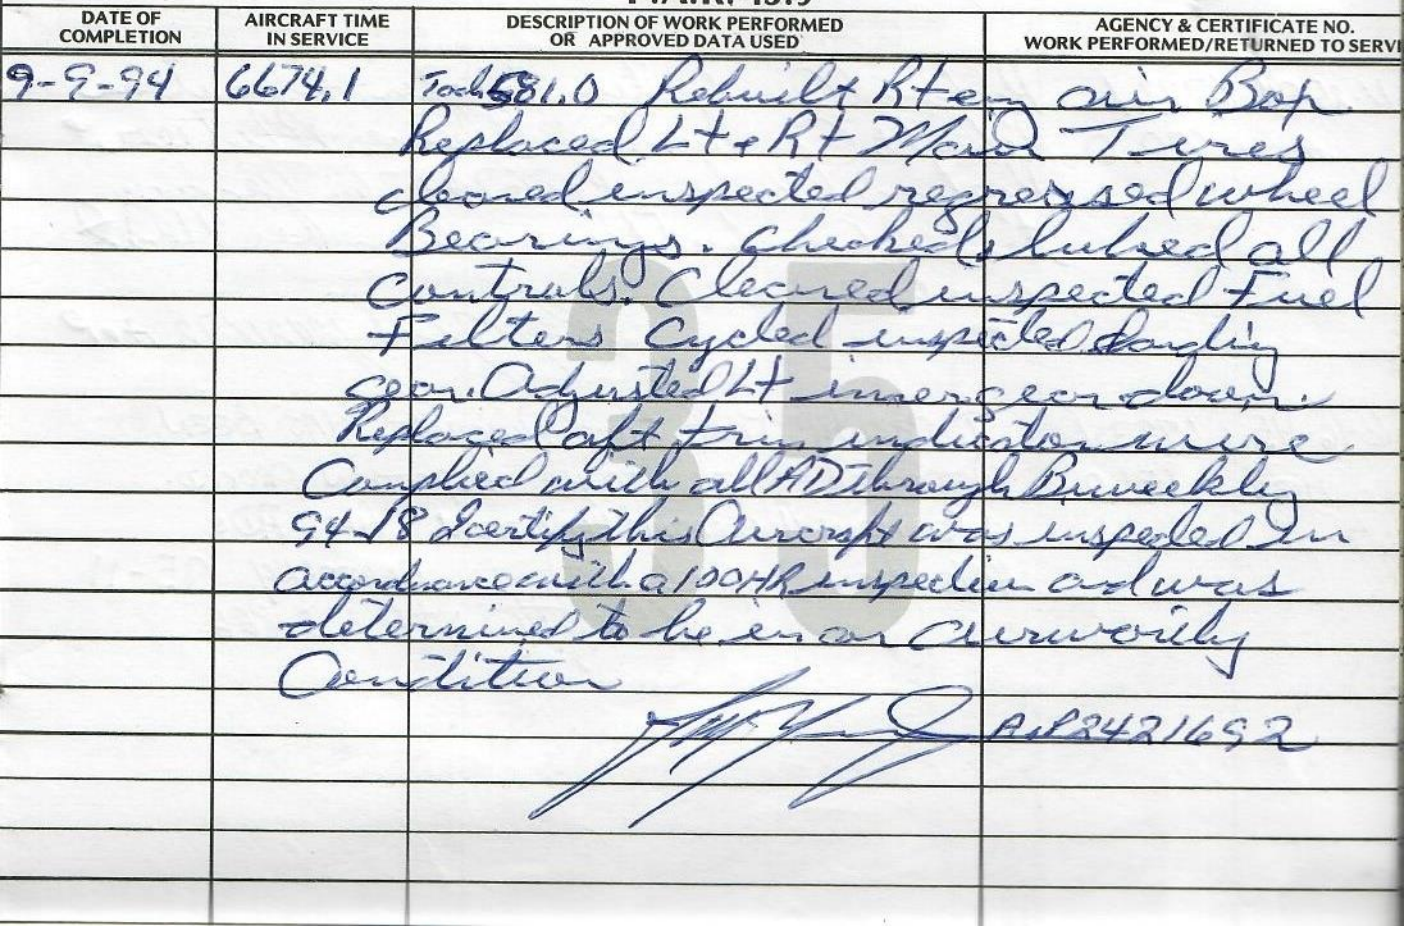 F.A.R. 43.9
DATE OF COMPLETION
AIRCRAFT TIME IN SERVICE
DESCRIPTION OF WORK PERFORMED OR APPROVED DATA USED
AGENCY & CERTIFICATE NO. WORK PERFORMED/RETURNED TO SERVI
9-9-94 6674.1 Tach 581.0 Rebuilt Rt eng air Box
Replaced Lt & Rt Main Tires
cleaned inspected regreased wheel
Bearings. Checked & lubed all
controls. Cleaned inspected Fuel
Filters Cycled inspected Landing
gear. Adjusted Lt inner gear door.
Replaced aft trim indicator wire
Complied with all AD through Biweekly
94-18 I certify this Aircraft was inspected in
accordance with a 100 HR inspection and was
determined to be in an airworthy
Condition
A&P2421692
35